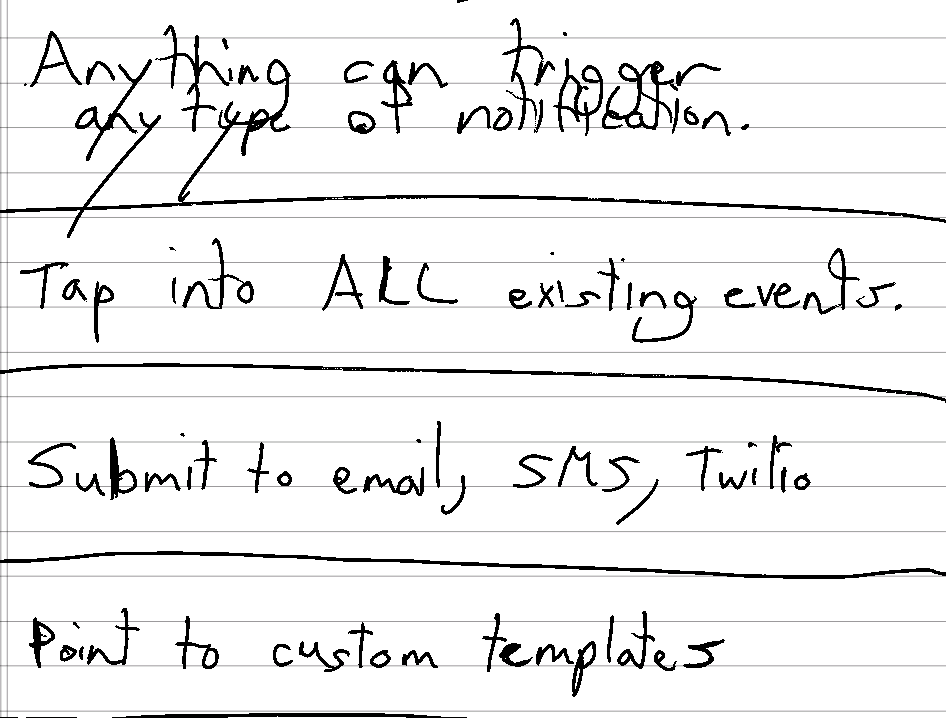 Anything can trigger
any type of notification.
Tap into ALL existing events.
Submit to email, SMS, Twilio
Point to custom templates